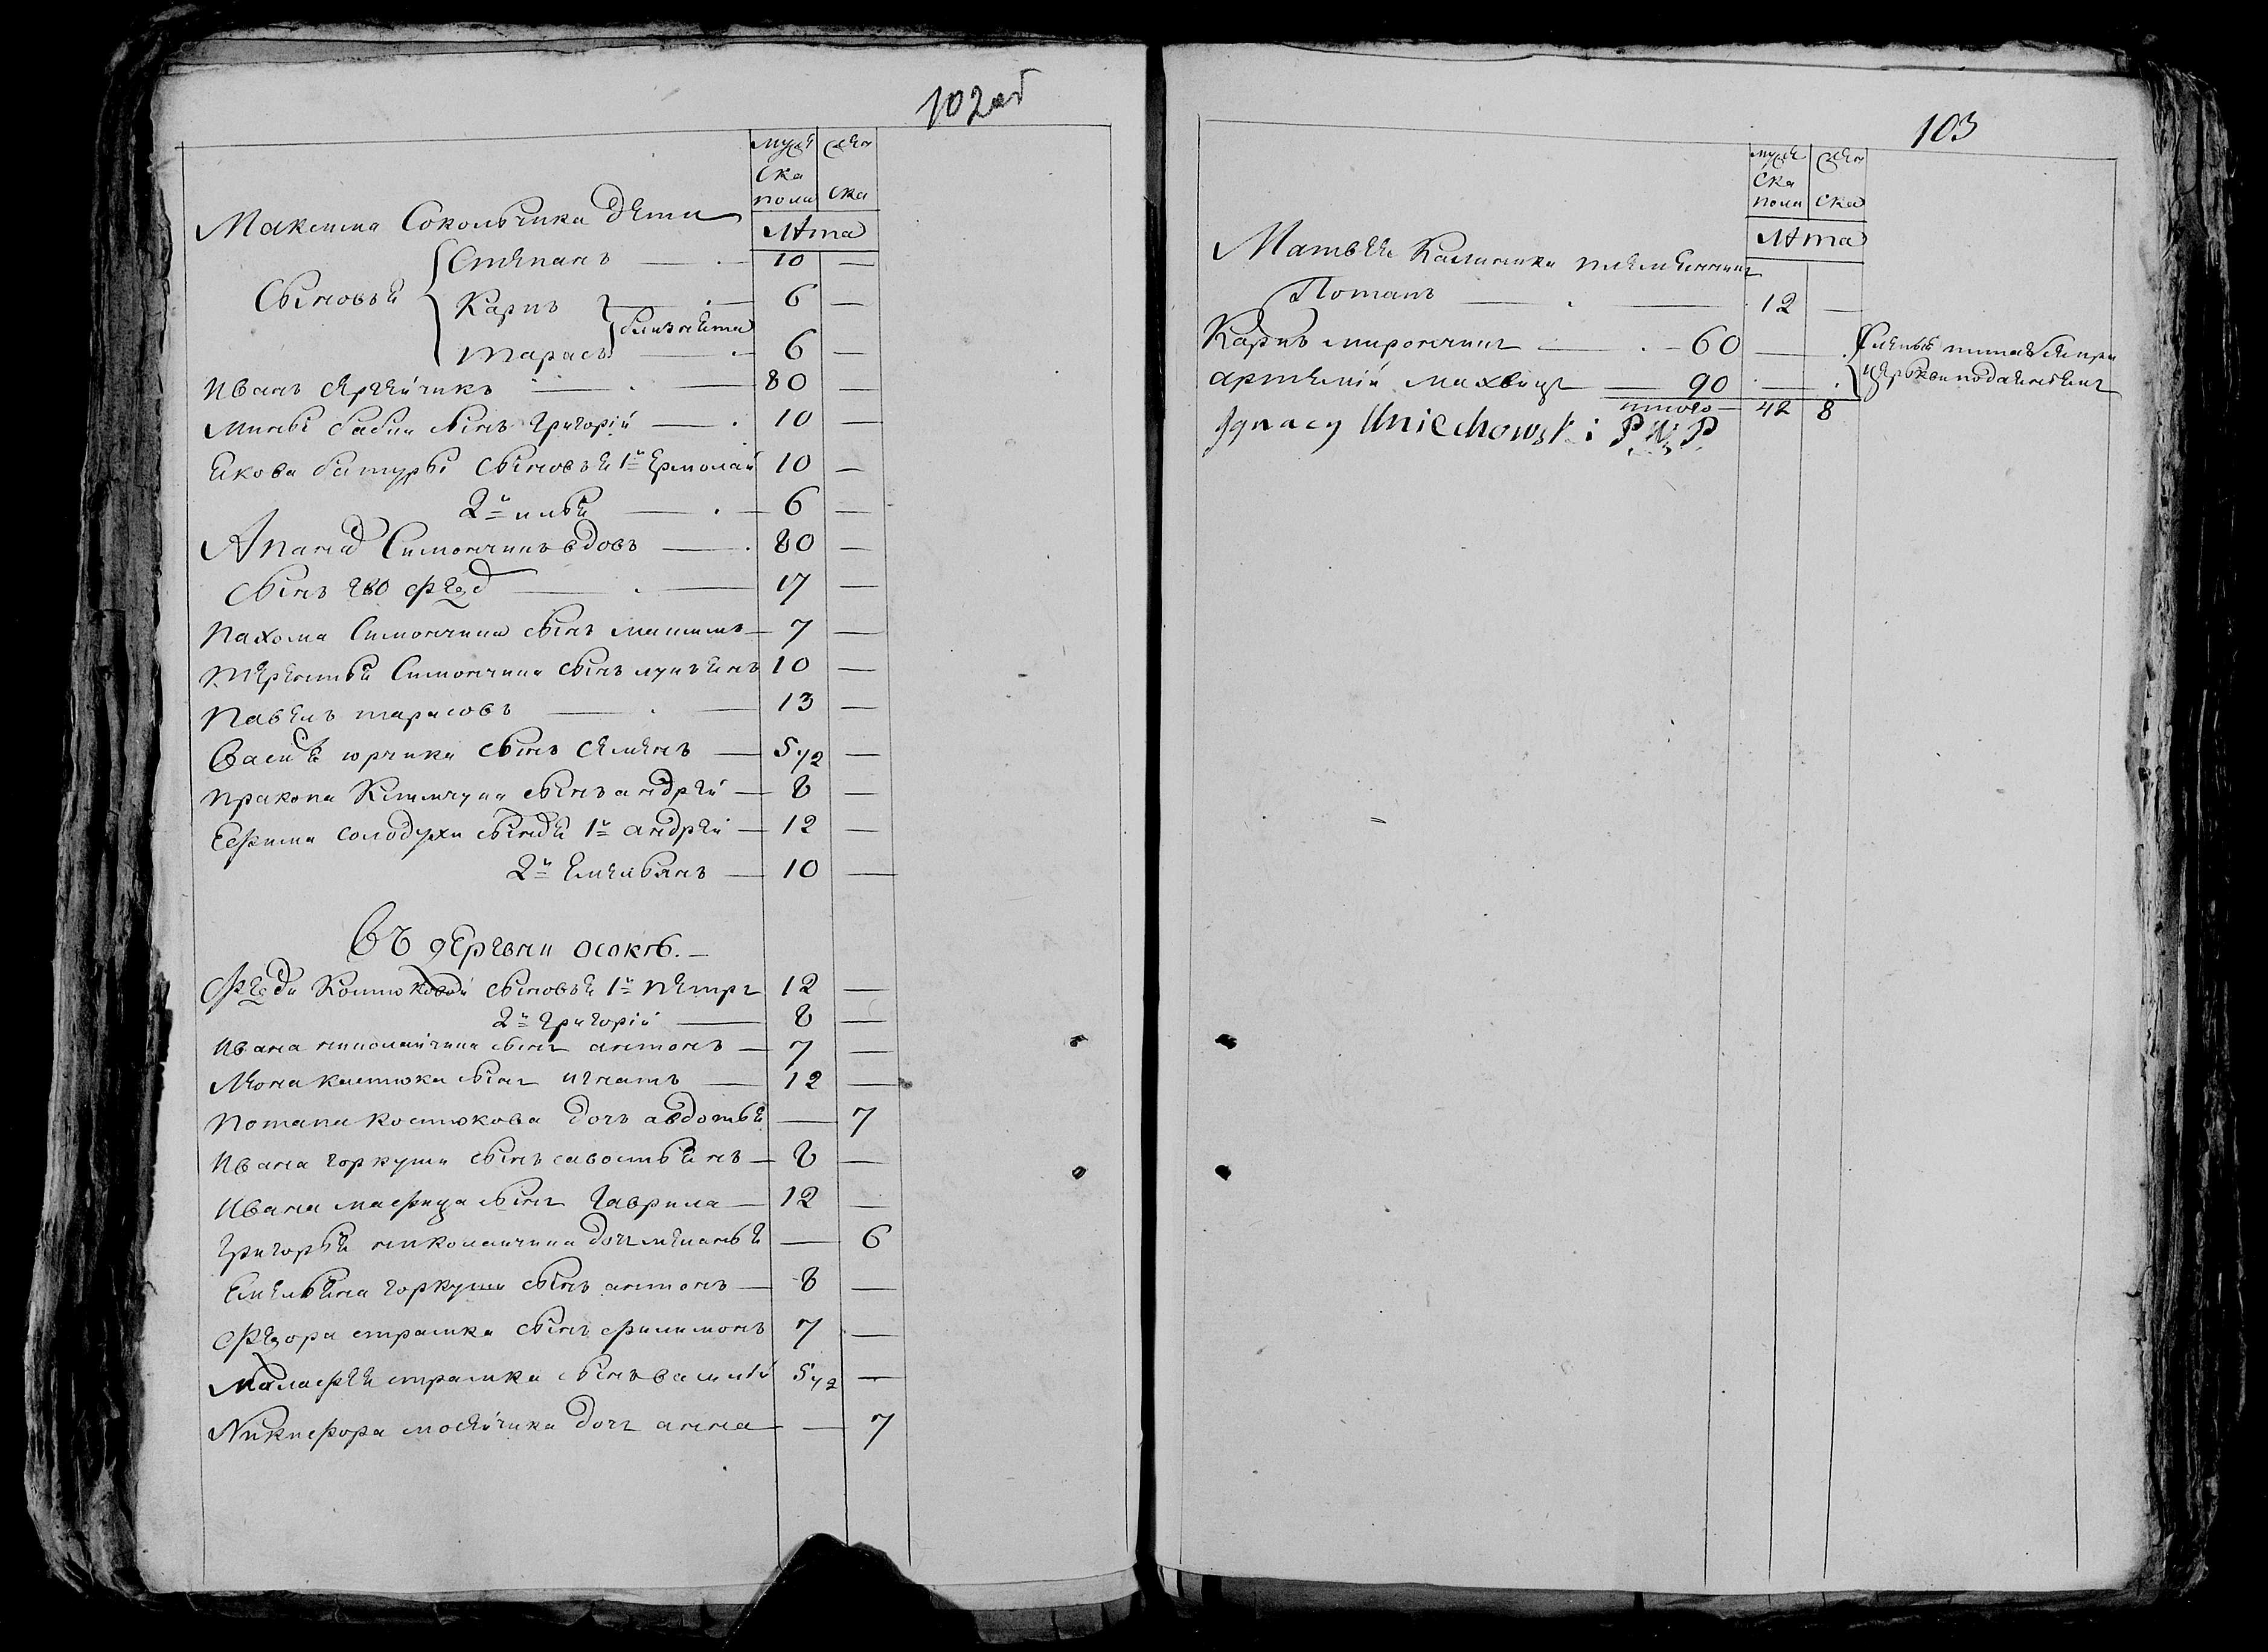 102об
муже ска пола
жен ска
Лѣта
Максима Сокольчика дѣти
Сыновья
Степанъ — 10 —
Карпъ — 6 —
близнята
тарасъ — 6 —
Иванъ — 80 —
сынъ Григорій — 10 —
Якова батуры сыновья 1й Ермолай 10 —
2й илья — 6 —
Апанас Симончикъ вдовъ — 80 —
сынъ его Федор — 17 —
Пахома Симончика сынъ максимъ — 7 —
Терентья Симончика сынъ лукьянъ 10 —
Павелъ тарасовъ — 13 —
Василя юрчика сынъ семенъ — 5 1/2 —
Пракопа сынъ андрей — 8 —
Ефима солодухи сыновья 1й андрей — 12 —
2й Емельянъ — 10 —
Въ деревни осокѣ. —
Федора сыновья 1й петръ 12 —
2й Григорій — 8 —
Ивана николайчика сынъ антонъ — 7 —
Леона костюка сынъ игнатъ — 12 —
Потапа костюкова дочъ авдотья — 7
Ивана горкуши сынъ савостьянъ — 8 —
Ивана сынъ Гаврила — 12 —
Григорья николаичика дочъ меланья — 6
Емельяна горкуши сынъ антонъ — 8 —
Федора страмка сынъ филимонъ 7 —
Малафея страмка сынъ василій 5 1/2 —
Никифора дочъ анна — 7
103
муже ска пола
жен ска
Лѣта
Матвея племянникъ
Потапъ — 12 —
Карпъ мирончикъ — 60 —
артемій — 90 —
церкви подаяніемъ
итого — 42 8
Ignacy Uniechowski P W P